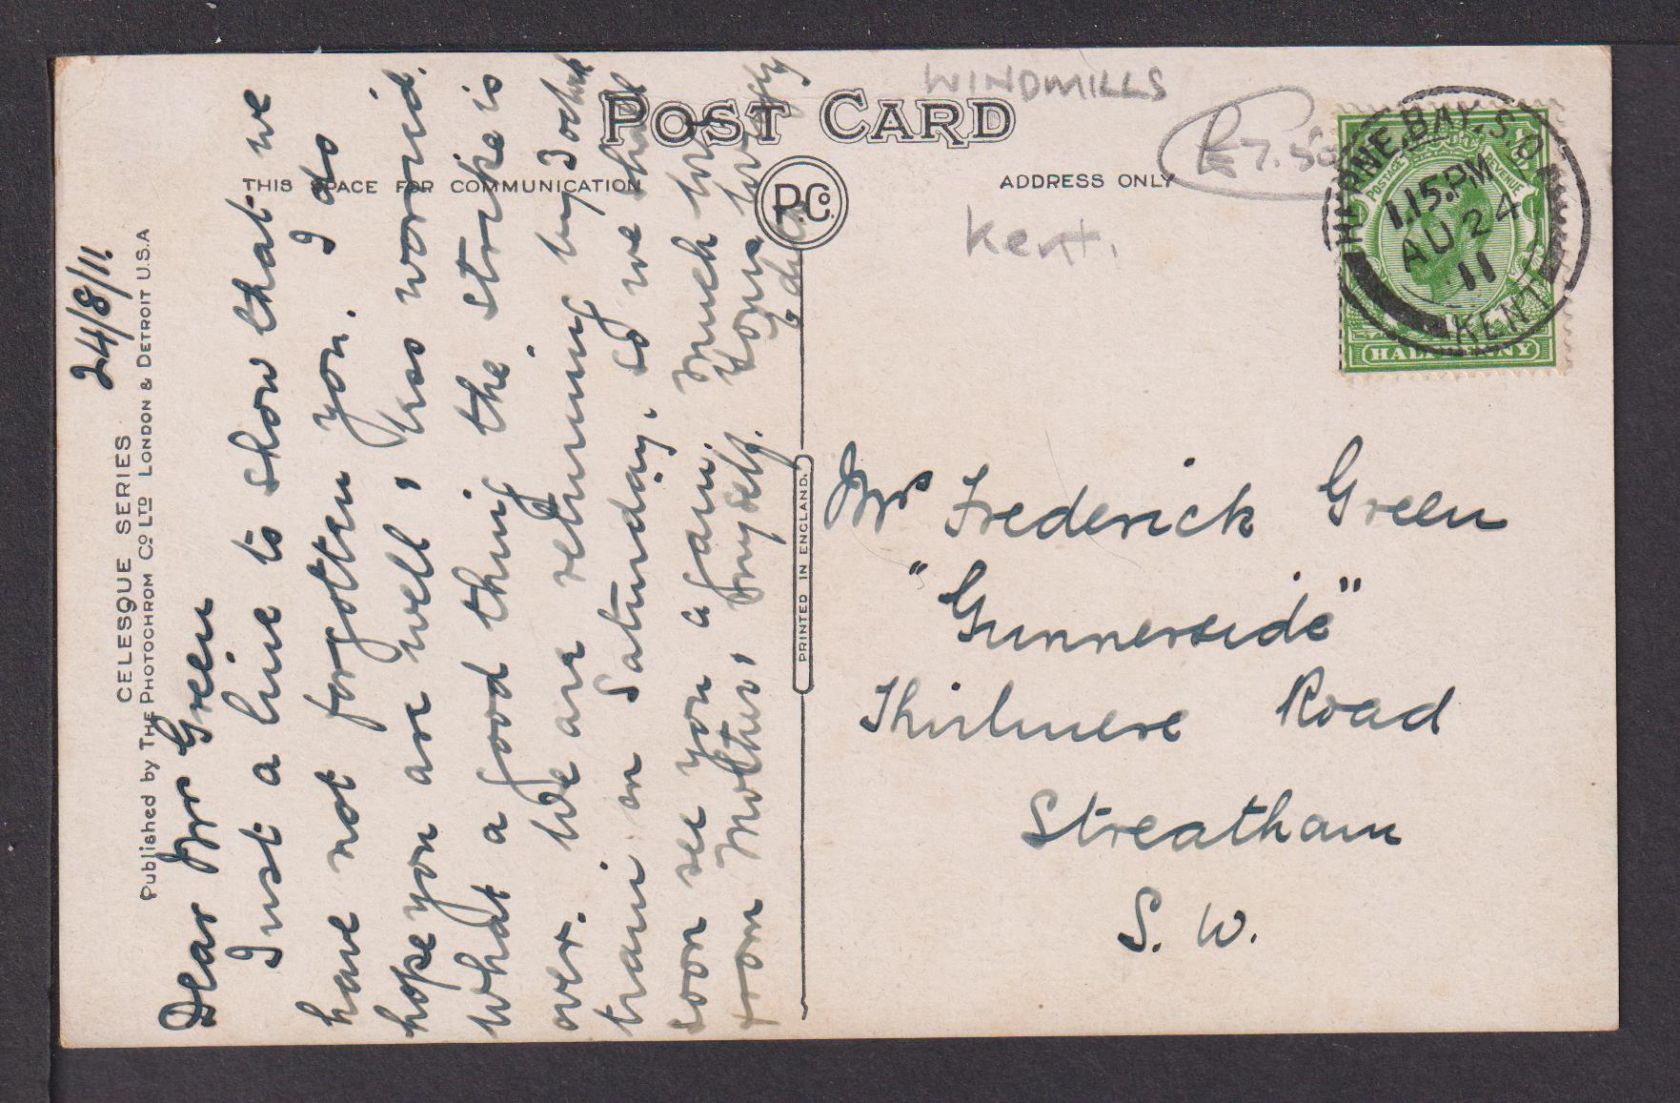 WINDMILLS
£7.50
POST CARD
THIS SPACE FOR COMMUNICATION
ADDRESS ONLY
P.Co.
Kent.
HERNE.BAY.S.O
1.15.PM
AU 24
11
KENT
POSTAGE REVENUE
HALFPENNY
CELESQUE SERIES
Published by THE PHOTOCHROM Co LTD LONDON & DETROIT U.S.A
PRINTED IN ENGLAND.
24/8/11.
Dear Mrs Green
Just a line to show that we
have not forgotten you. I do
hope you are well, & less worried.
What a good thing the strike is
over. We are returning by 3 o'clock
train on Saturday, so we shall
soon see you again. Much love
from Mother, & myself. Yours lovingly
Mrs Frederick Green
"Gunnerside"
Thirlmere Road
Streatham
S. W.